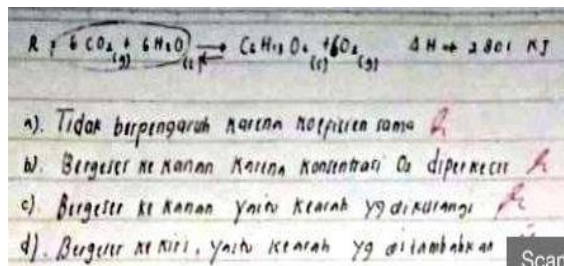 R : 6 CO₂ + 6H₂O ⇌ C₆H₁₂O₆ + 6O₂ ΔH = + 2801 KJ
(g) (l) (s) (g)
a). Tidak berpengaruh karena koefisien sama
b). Bergeser ke kanan karena konsentrasi O₂ diperkecil
c). Bergeser ke kanan yaitu kearah yg dikurangi
d). Bergeser ke kiri, yaitu kearah yg ditambahkan
Scan